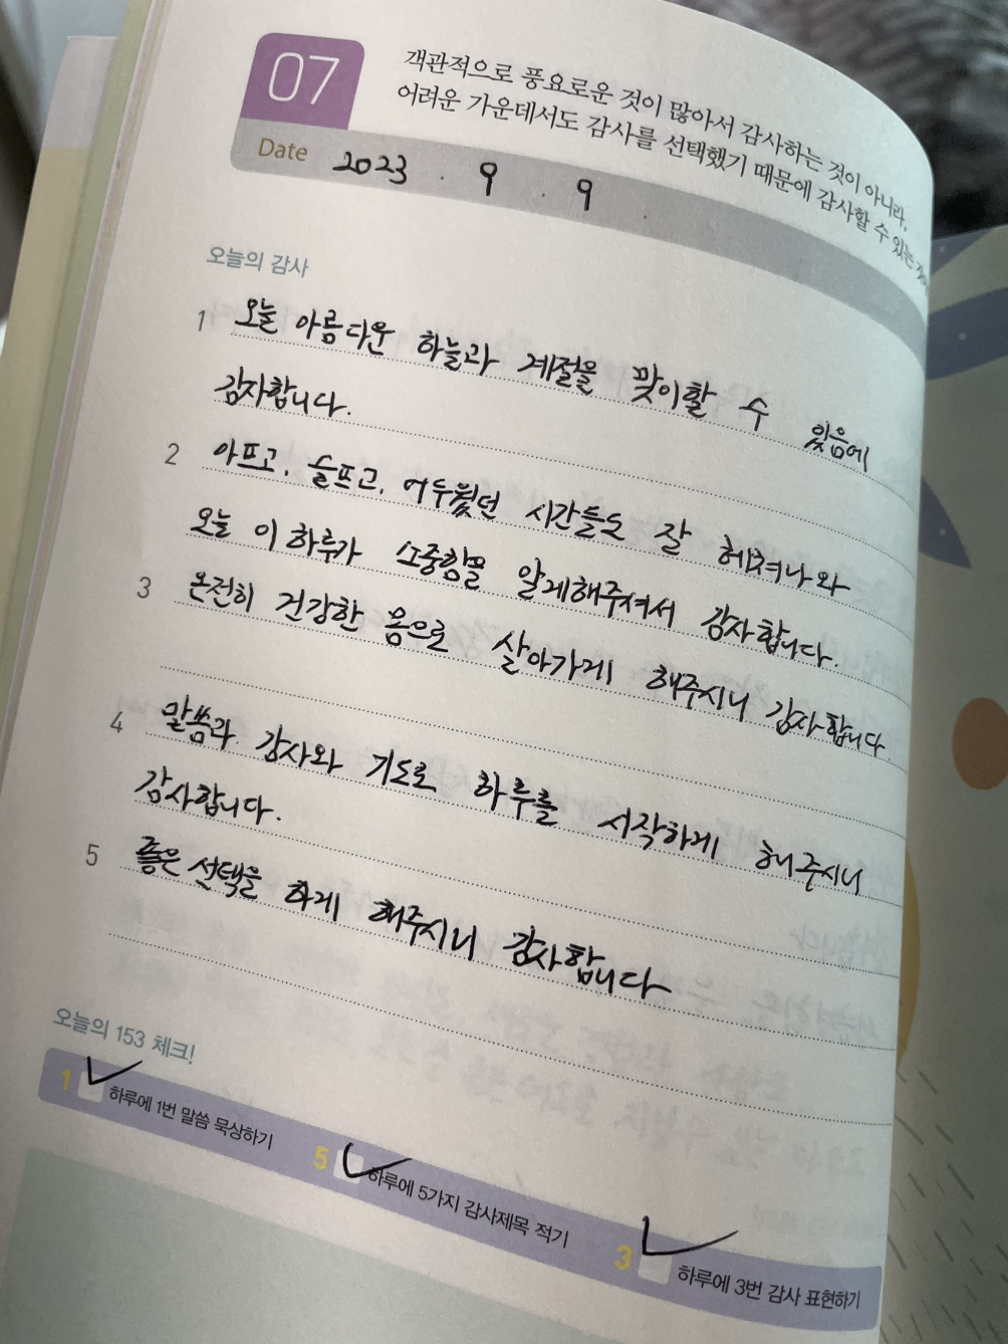 07
객관적으로 풍요로운 것이 많아서 감사하는 것이 아니라,
어려운 가운데서도 감사를 선택했기 때문에 감사할 수 있는
Date 2023 . 9 . 9 .
오늘의 감사
1 오늘 아름다운 하늘과 계절을 맞이할 수 있음에
감사합니다.
2 아프고, 슬프고, 어두웠던 시간들도 잘 헤쳐나와
오늘 이 하루가 소중함을 알게해주셔서 감사합니다.
3 온전히 건강한 몸으로 살아가게 해주시니 감사합니다
4 말씀과 감사와 기도로 하루를 시작하게 해주시니
감사합니다.
5 좋은 선택을 하게 해주시니 감사합니다
오늘의 153 체크!
1 하루에 1번 말씀 묵상하기
5 하루에 5가지 감사제목 적기
3 하루에 3번 감사 표현하기